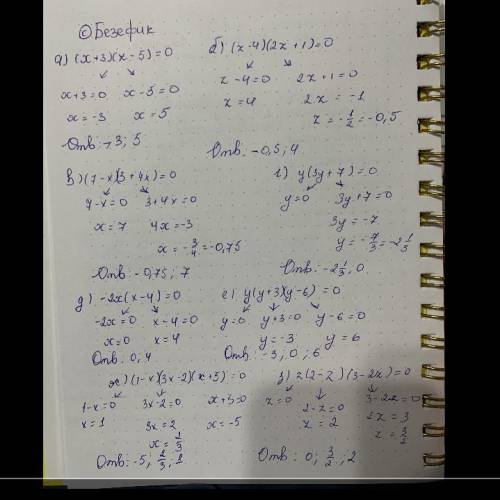 © Безефик
а) (x+3)(x-5)=0
x+3=0 x-5=0
x=-3 x=5
Отв: -3; 5
б) (z-4)(2z+1)=0
z-4=0 2z+1=0
z=4 2z=-1
z=-1/2=-0,5
Отв: -0,5; 4
в) (7-x)(3+4x)=0
7-x=0 3+4x=0
x=7 4x=-3
x=-3/4=-0,75
Отв: -0,75; 7
г) y(3y+7)=0
y=0 3y+7=0
3y=-7
y=-7/3=-2 1/3
Отв: -2 1/3; 0
д) -2x(x-4)=0
-2x=0 x-4=0
x=0 x=4
Отв: 0; 4
е) y(y+3)(y-6)=0
y=0 y+3=0 y-6=0
y=-3 y=6
Отв: -3; 0; 6
ж) (1-x)(3x-2)(x+5)=0
1-x=0 3x-2=0 x+5=0
x=1 3x=2 x=-5
x=2/3
Отв: -5; 2/3; 1
з) z(2-z)(3-2z)=0
z=0 2-z=0 3-2z=0
z=2 2z=3
z=3/2
Отв: 0; 3/2; 2